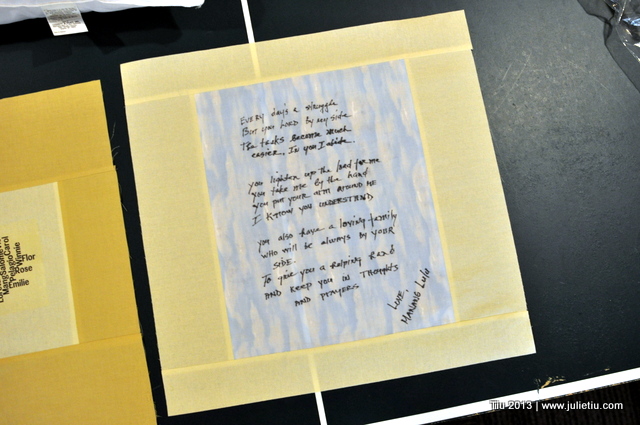 Every day's a struggle
But you Lord by my side
The tasks become much
easier, In you I abide.
You lighten up the load for me
You take me by the hand
You put your arm around me
I know you understand
You also have a loving family
who will be always by your
side.
To give you a helping hand
and keep you in thoughts
and prayers
Love,
Manang Lulu
Carol
Winnie
Flor
Rose
Emilie
Tiu 2013 | www.julietiu.com